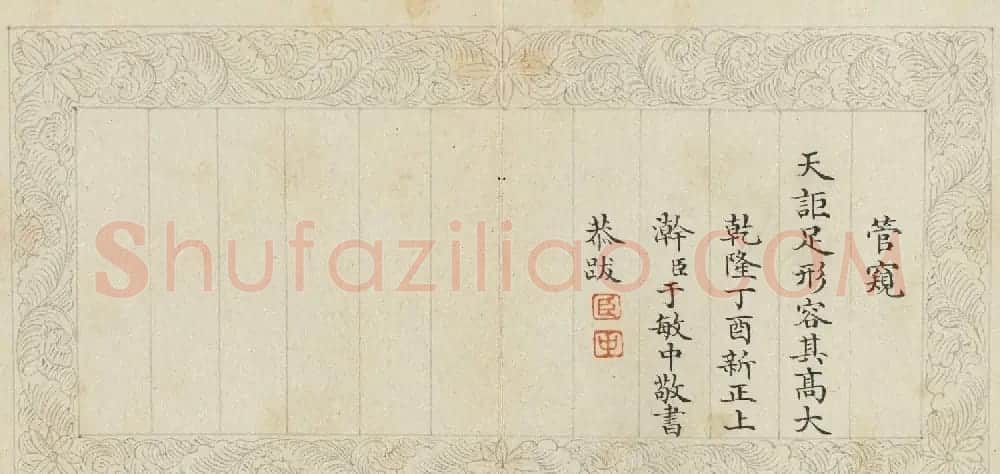 管窺
天詎足形容其高大
乾隆丁酉新正上
澣臣于敏中敬書
恭跋
臣
中
Shufaziliao.COM